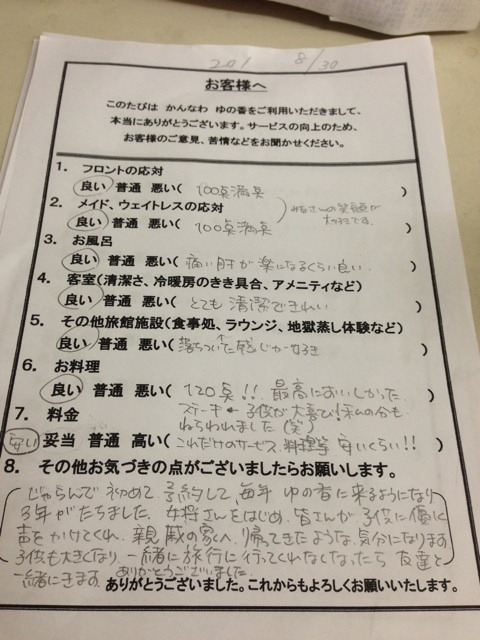 201 8/30
お客様へ
このたびは かんなわ ゆの香をご利用いただきまして、
本当にありがとうございます。サービスの向上のため、
お客様のご意見、苦情などをお聞かせください。
1. フロントの応対
良い 普通 悪い( 100点満点 )
2. メイド、ウェイトレスの応対
良い 普通 悪い( 100点満点 )
皆さんの笑顔が
です。
3. お風呂
良い 普通 悪い( 痛い肘が楽になるくらい良い. )
4. 客室(清潔さ、冷暖房のきき具合、アメニティなど)
良い 普通 悪い( とても清潔できれい )
5. その他旅館施設(食事処、ラウンジ、地獄蒸し体験など)
良い 普通 悪い( 落ちついた感じが好き )
6. お料理
良い 普通 悪い( 120点!! 最高においしかった )
ステーキ ← 子供が大喜び!私の分も
ねらわれました(笑)
7. 料金
安い 妥当 普通 高い( これだけのサービス、料理等 安いくらい!! )
8. その他お気づきの点がございましたらお願いします。
じゃらんで初めて予約して、毎年 ゆの香に来るようになり
3年がたちました. 女将さんをはじめ、皆さんが子供に優しく
声をかけてくれ、親戚の家へ帰ってきたような気分になります
子供も大きくなり、一緒に旅行に行ってくれなくなったら 友達と
一緒にきます. ありがとうございました
ありがとうございました。これからもよろしくお願いいたします。